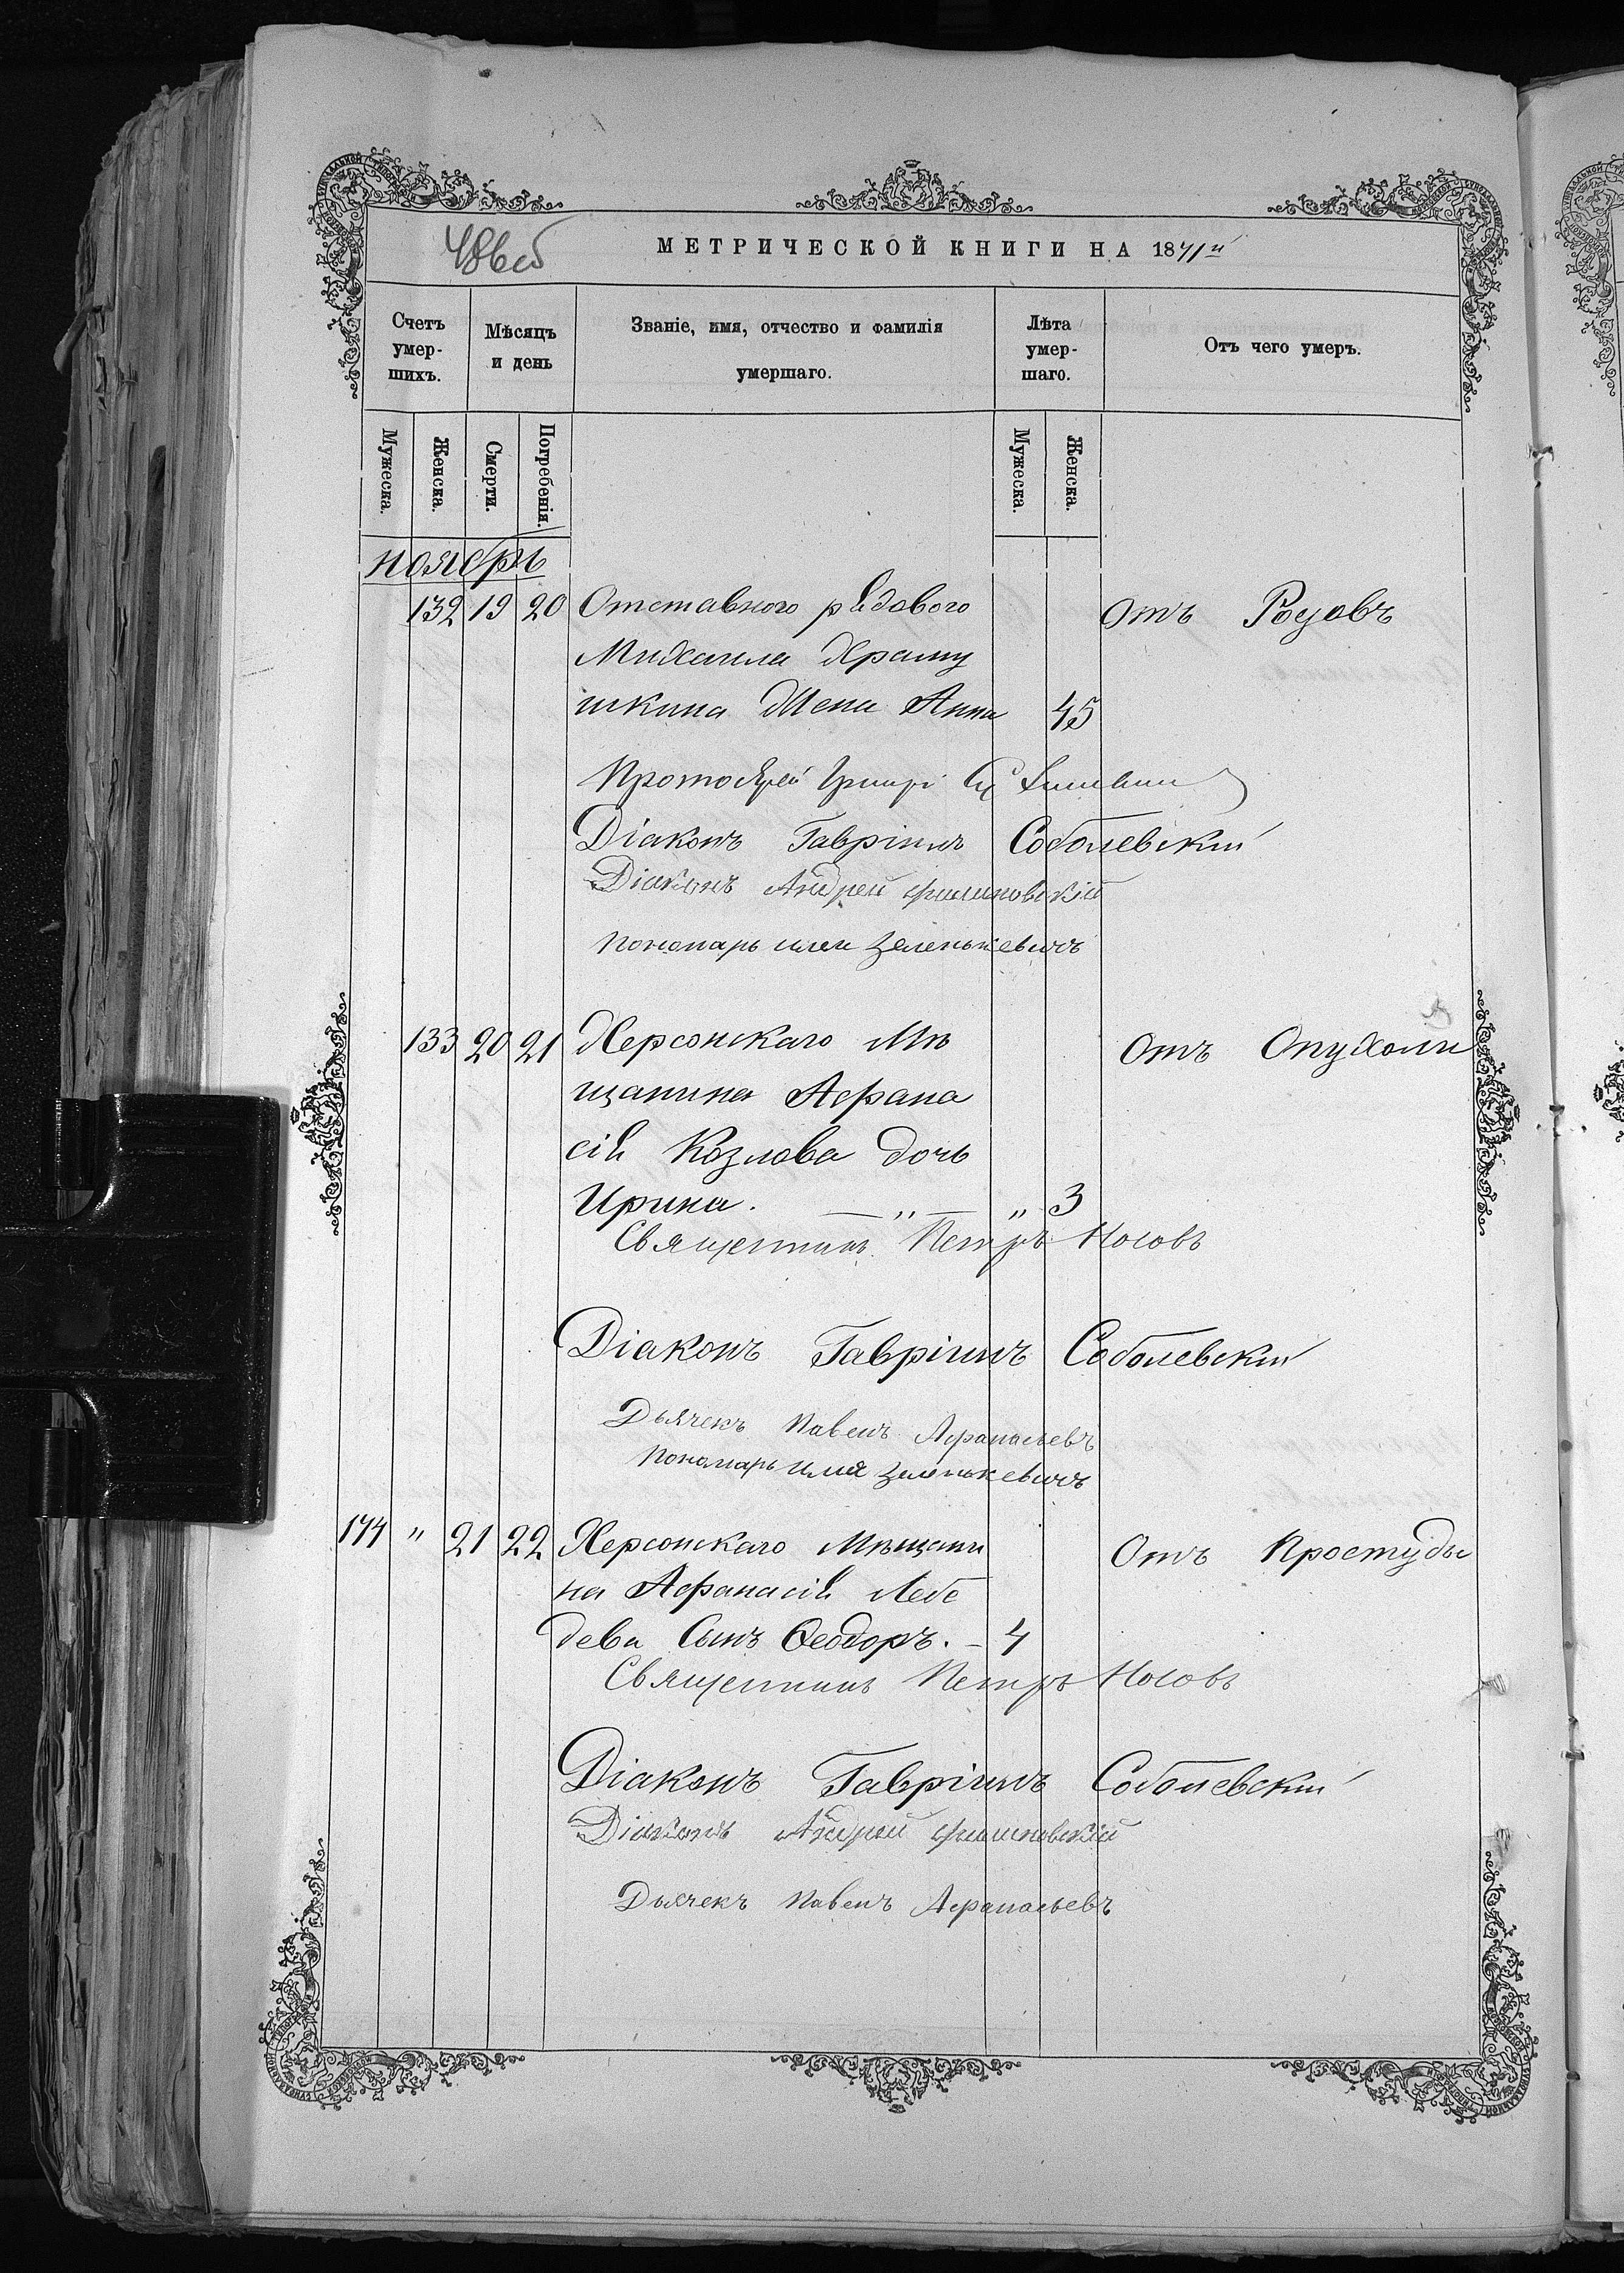 486об
МЕТРИЧЕСКОЙ КНИГИ НА 1871й
Счетъ умер-шихъ.
Мѣсяцъ и день
Званіе, имя, отчество и фамилія умершаго.
Лѣта умер-шаго.
Отъ чего умеръ.
Мужеска.
Женска.
Смерти.
Погребенія.
Мужеска.
Женска.
Ноябрь
132 19 20 Отставного рядового Отъ Родовъ
Михаила Храпу
шкина Жена Анна 45
Протоіерей
Діаконъ Гавріилъ Соболевскій
Діаконъ Андрей Филиповскій
Пономарь Илія Зеленькевичъ
133 20 21 Херсонскаго Мѣ Отъ Опухоли
щанина Афана
сія Козлова дочь
Ирина. — „ — „ 3
Священникъ Петръ Носовъ
Діаконъ Гавріилъ Соболевскій
Дьячекъ Павелъ Афанасьевъ
Пономарь Илія Зеленькевичъ
174 „ 21 22 Херсонскаго Мѣщани Отъ Простуды
на Афанасія Лебе
дева Сынъ Ѳеодоръ. – 4
Священникъ Петръ Носовъ
Діаконъ Гавріилъ Соболевскій
Діаконъ Андрей Филиповскій
Дьячекъ Павелъ Афанасьевъ